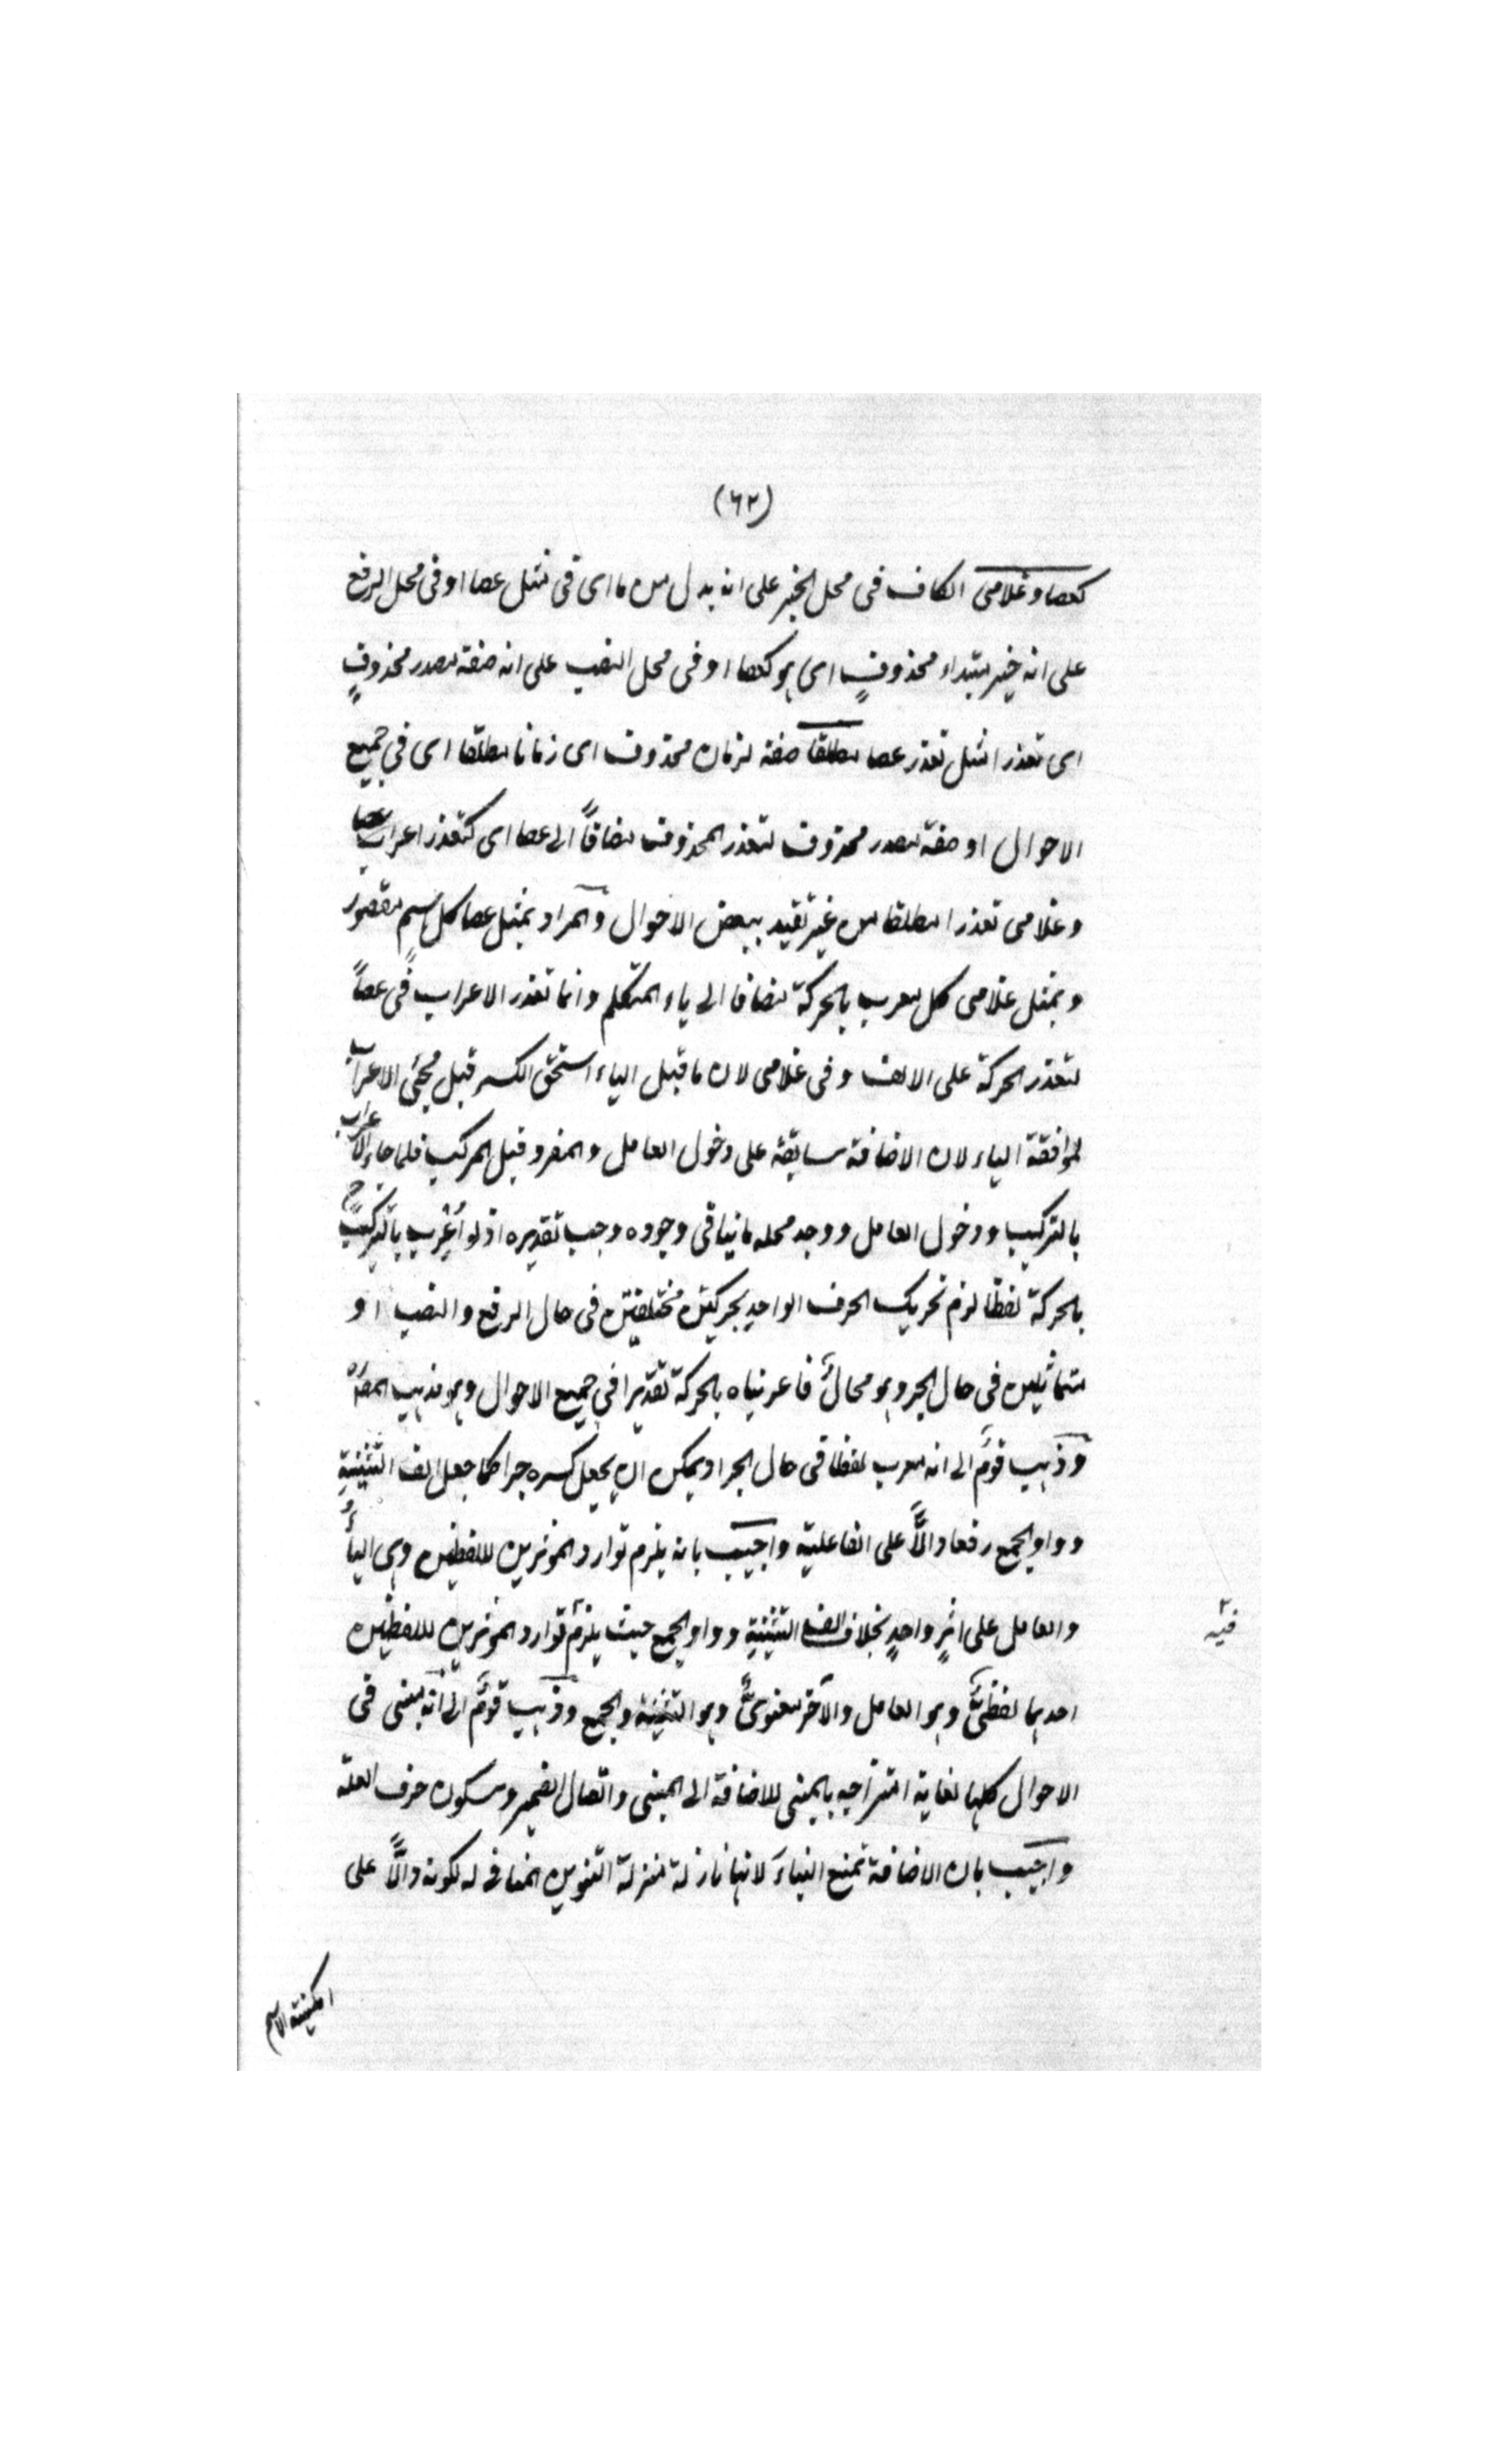 (٦٢)
كعصا وغلامى الكاف فى محل الجر على انه بدل من ما اى فى مثل عصا او فى محل الرفع
على انه خبر مبتداء محذوفٍ اى هو كعصا او فى محل النصب على انه صفة مصدر محذوفٍ
اى تعذرا مثل تعذر عصا مطلقا صفة لزمان محذوف اى زمانا مطلقا اى فى جميع
الاحوال او صفة مصدر محذوف لتعذر المحذوف مضافاً الى عصا اى كتعذر اعراب عصا
وغلامى تعذرا مطلقا من غير تقيد ببعض الاحوال والمراد بمثل عصا كل اسم مقصور
وبمثل غلامى كل معرب بالحركة مضافا الى ياء المتكلم وانما تعذر الاعراب فى عصاً
لتعذر الحركة على الالف وفى غلامى لان ما قبل الياء استحق الكسر قبل مجئ الاعراب
لموافقة الياء لان الاضافة سابقة على دخول العامل والمفرد قبل المركب فلما جاء الاعراب
بالتركيب ودخول العامل ووجد محله ما ينافى وجوده وجب تقديره اذ لو أُعْرِب بالتركيب ح
بالحركة لفظا لزم تحريك الحرف الواحد بحركتين مختلفتين فى حال الرفع والنصب او
متماثلين فى حال الجر وهو محالٌ فاعربناه بالحركة تقديرا فى جميع الاحوال وهو مذهب المصٌ
وذهب قومٌ الى انه معرب لفظا فى حال الجر اذ يمكن ان يجعل كسره جرا كما جعل الف التثنيةِ
وواو الجمع رفعا دالاًّ على الفاعلية واجيب بانه يلزم توارد المؤثرين للفظين وهى الياءُ
والعامل على اثرٍ واحدٍ بخلاف الف التثنيةِ وواو الجمع حيث يلزم توارد المؤثرين للفظين
فيه
احدهما لفظىٌّ وهو العامل والآخر معنوىٌّ وهو التثنية والجمع وذهب قومٌ الى انه مبنى فى
الاحوال كلها لغاية امتزاجه بالمبنى للاضافة الى المبنى واتصال الضمير وسكون حرف العلة
واجيب بان الاضافة تمنع البناءَ لانها نازلة منزلة التنوين المنافى له لكونه دالاًّ على
امكنية الاسم